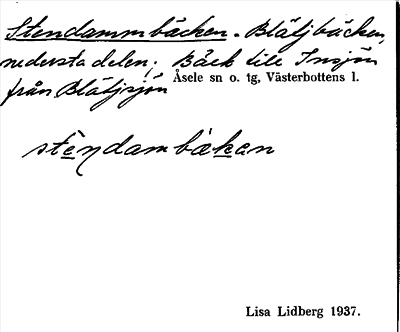 Stendammbäcken. Blåljbäcken,
nedersta delen; Bäck till Insjön
från Blåljsjön Åsele sn o. tg, Västerbottens l.
stèndambäkan
Lisa Lidberg 1937.